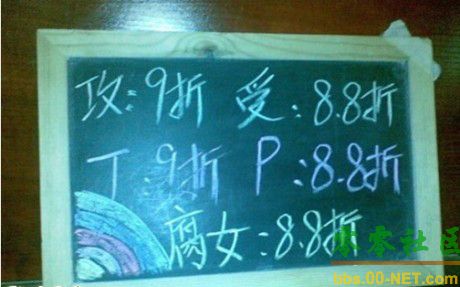 攻:9折 受:8.8折
T:9折 P:8.8折
腐女:8.8折
零零社区
bbs.00-NET.com